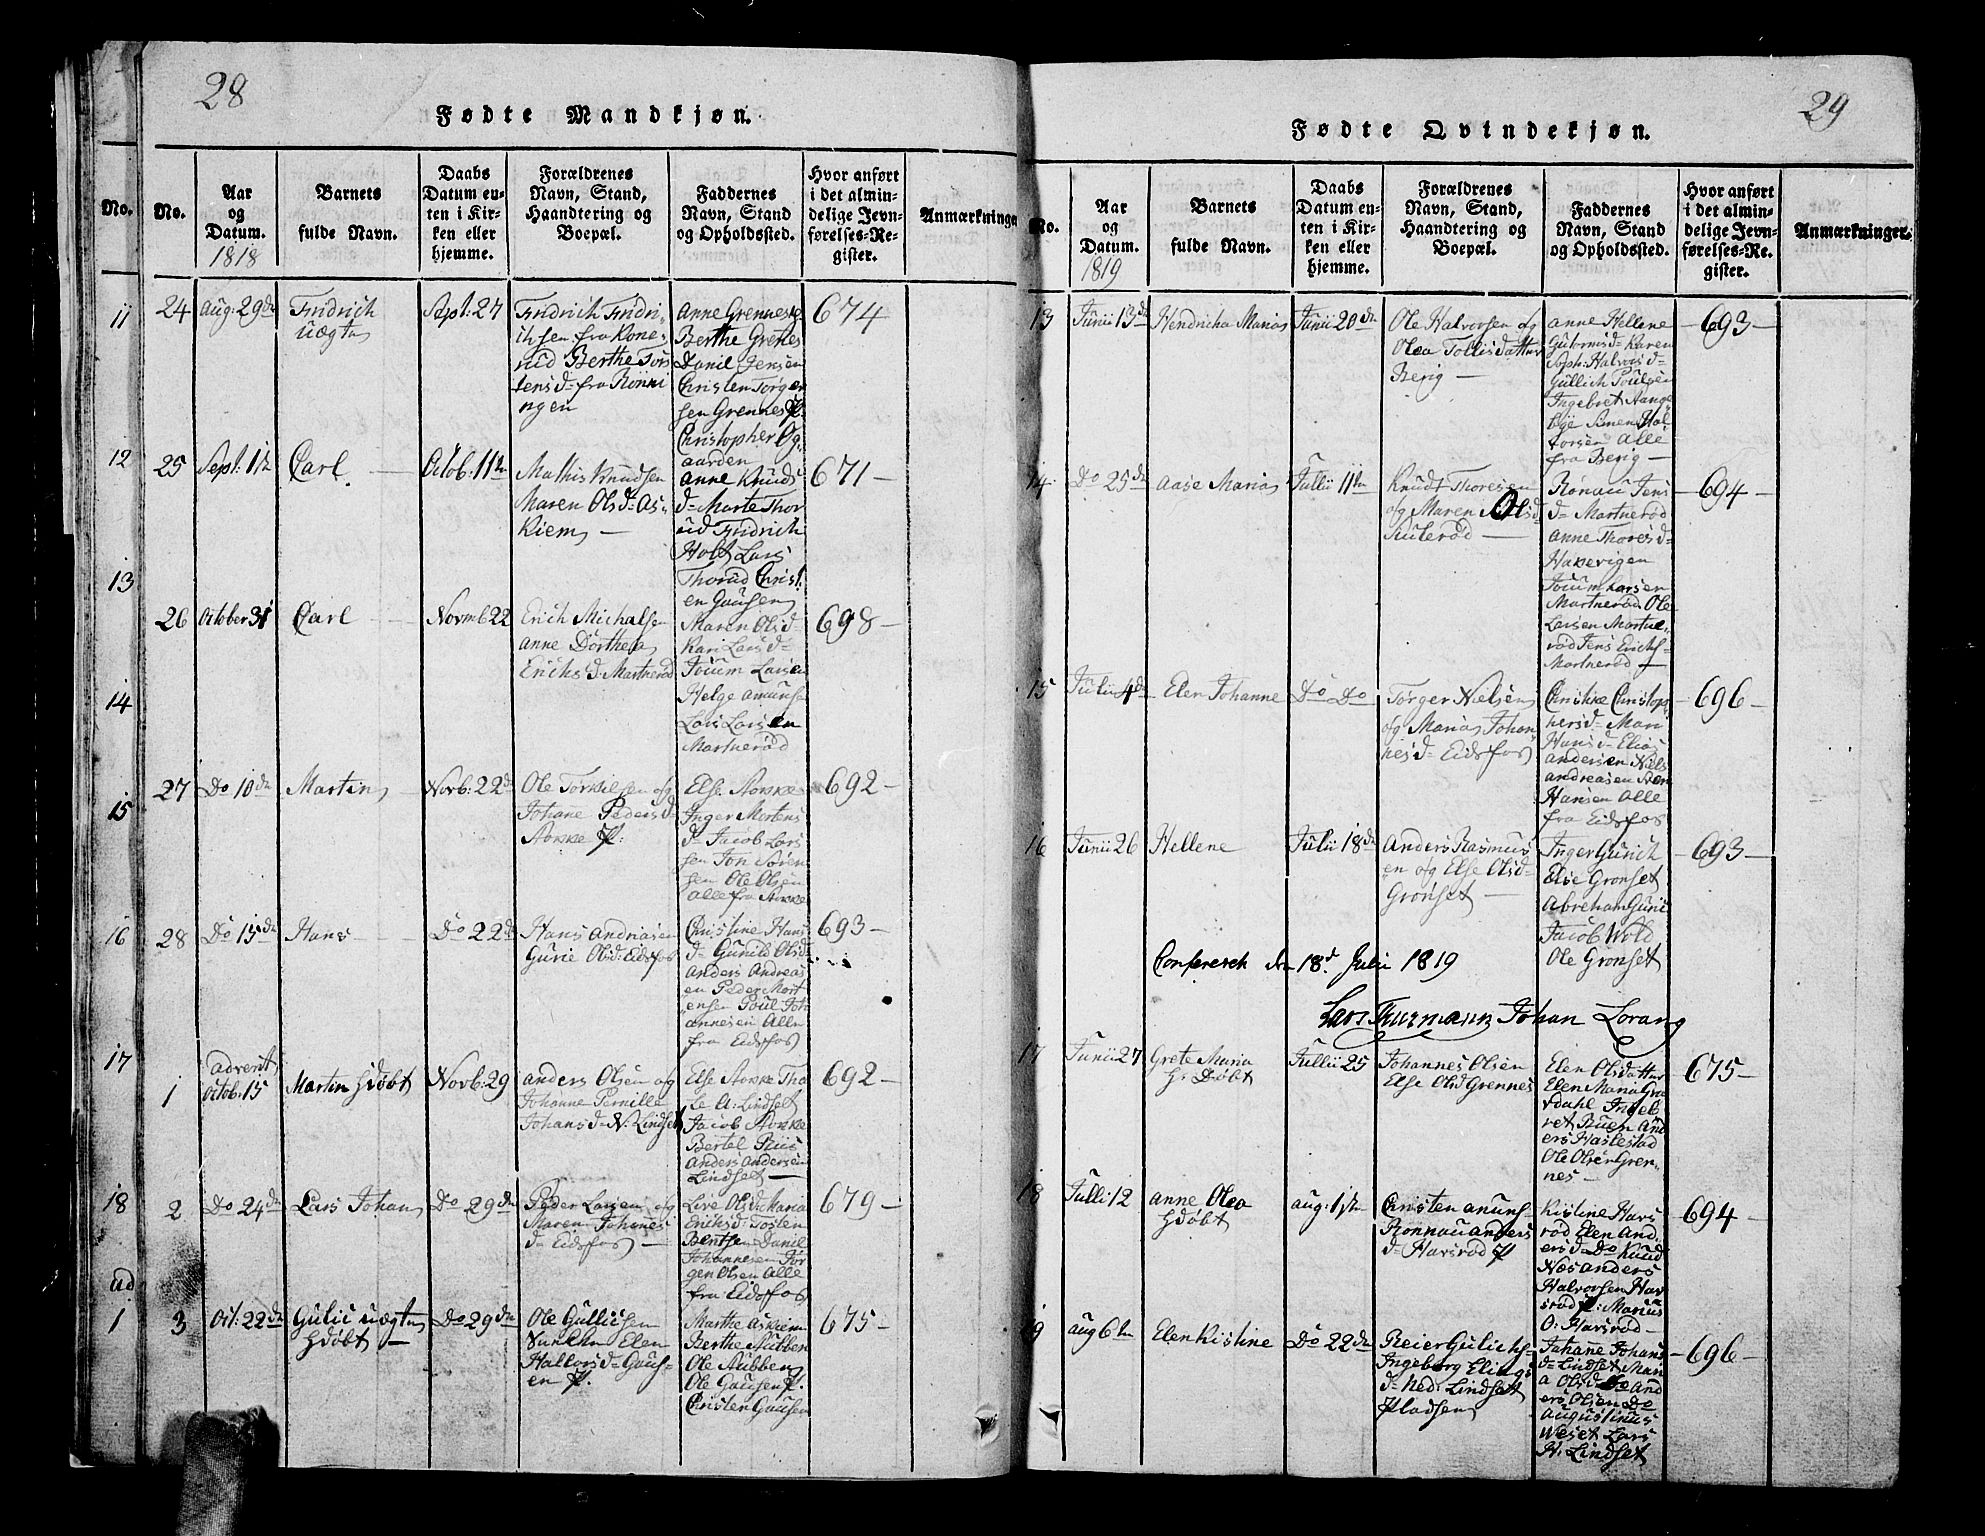 28
Fødte Mandkjøn.
No.
No.
Aar
og
Datum.
1818
Barnets
fulde Navn.
Daabs
Datum en-
ten i Kir-
ken eller
hjemme.
Forældrenes
Navn, Stand,
Haandtering og
Boepæl.
Faddernes
Navn, Stand
og Opholdssted.
Hvor anført
i det almin-
delige Jevn-
førelses-Re-
gister.
Anmærkninger
11
12
13
14
15
16
17
18
1
24
Aug: 29de
Fridrich
uægte
Sept: 27
Fridrich Fridri-
chsen fra Kone-
rud Berthe Tors
tensd= fra Rönni
ngen
Anne Grennes
Berthe Grenes
Danil Jensen
Christen Torger
sen Grennes P:
Christopher Og-
aarden
674
25
Sept: 1ste
Carl
Octob: 11te
Mathis Knudsen
Maren Olsd= As-
kiem
Anne Knuds
d= Marte Thor
ud Fridrich
Holt Lars
Thorud Christ
en Gausen
671-
26
October 31
Carl
Novemb 22
Erich Michalsen
Anne Dorthea
Erichsd= Martnerød
Maren Olsd=
Kari Larsd=
Jouum Larsen
Helge Amunse
Lars Larsen
Martnerød
698-
27
Do 10de
Martin
Novb: 22d
Ole Torkilsen og
Johane Pedersd=
Aorke P:
Else Aorke
Inger Mortens
d= Jacob Lars
sen Jon Sören
sen Ole Olsen
alle fra Aorke
692-
28
Do 15de
Hans
Do 22d
Hans Andriasen
Gurie Olsd: Eidsfos
Christine Hans
d= Gunild Olsd=
Anders Andreas
en Peder Mort
ensen Poul Joh
annesen Alle
fra Eidsfos
693-
1
advent
Octob: 15
Martin hdøbt
Novb: 29
Anders Olsen og
Johanne Pernille
Johansd= N: Lindset
Else Aorke Tho
le A: Lindset
Jacob Aorke
Bertel Riis
Anders Andersen
Lindset
692-
2
Do 24de
Lars Johan
Do 29de
Peder Larsen og
Maren Johanes
d= Eidsfos
Live Olsd= Maria
Erichsd: Tosten
Bentsen Danil
Johannesen Jør
gen Olsen Alle
fra Eidsfos
679-
3
Oct: 22de
Gulic uægte
hdøbt
Do 29de
Ole Gullicsen
Elen
Halvorsd= Gaus-
en P.
Marthe Askiem
Berthe Nubben
Ole Nubben
Ole Gausen P.
Christen Gausen
675-
29
Fødte Qvindekjøn.
No.
Aar
og
Datum.
1819
Barnets
fulde Navn.
Daabs
Datum en-
ten i Kir-
ken eller
hjemme.
Forældrenes
Navn, Stand,
Haandtering og
Boepæl.
Faddernes
Navn, Stand
og Opholdssted.
Hvor anført
i det almin-
delige Jevn-
førelses-Re-
gister.
Anmærkninger.
13
Junii 13de
Hendricha Maria
Junii 20de
Ole Halvorsen og
Olea Tollisdatter
Berig
Anne Hellene
Gutormsd= Karen
Soph: Halvorsd=
Gullich Poulsen
Ingebret Aange
Simen Hal
vorsen Alle
fra Berig
693-
14
Do 25de
Aase Maria
Julii 11te
Knudt Thoresen
og Maren Olsd=
Rønau Jens
d= Martnerød
Anne Thoresd=
Hakevigen
Jouum Larsen
Martnerød Ole
Larsen Martne-
rød Jens Erichs-
Martnerød
694-
15
Julii 4de
Elen Johanne
Do Do
Torger Nielsen
og Maria Johan
nesd= Eidsfos
Christine Christop
hersd= Mari
Hansd= Elias
Andersen Niels
Andreasen
Hansen Alle
fra Eidsfos
696-
16
Junii 26
Hellene
Julii 18de
Anders Rasmus
en og Else Olsd=
Gronset
Inger Gurich
Else Gronset
Abreham Guric
Jacob Wold
Ole Gronset
693-
Confererit den 18d. Julii 1819
Lars Thurmann Johan Lorang
17
Junii 27
Grete Maria
h: døbt
Julii 25
Johannes Olsen
Else Olsd Grennes
Elen Olsdatter
Elen Maria Gra
vdahl Ingeb
ret Ruen And
ers Haslestad
Ole Olsen Gren-
nes
675-
18
Julii 12
Anne Olea
hdøbt
Aug: 1ste
Christen Amuns-
Ronnau Anders
d= Harsrød P
Kistine Hars
rød Elen And
ersd= Do Knud
Næs Anders
Halvorsen Har
srød P: Marius
O: Harsrød
694-
19
Aug 6te
Elen Kistine
Do 22de
Reier Gulichs-
Ingeborg Elings
d= Ned: Lindset
Pladsen
Johane Johans
d= Lindset Mari
a Olsd= Do And
ers Olsen Do
Augustinus
Weset Lars
H: Lindset
696-